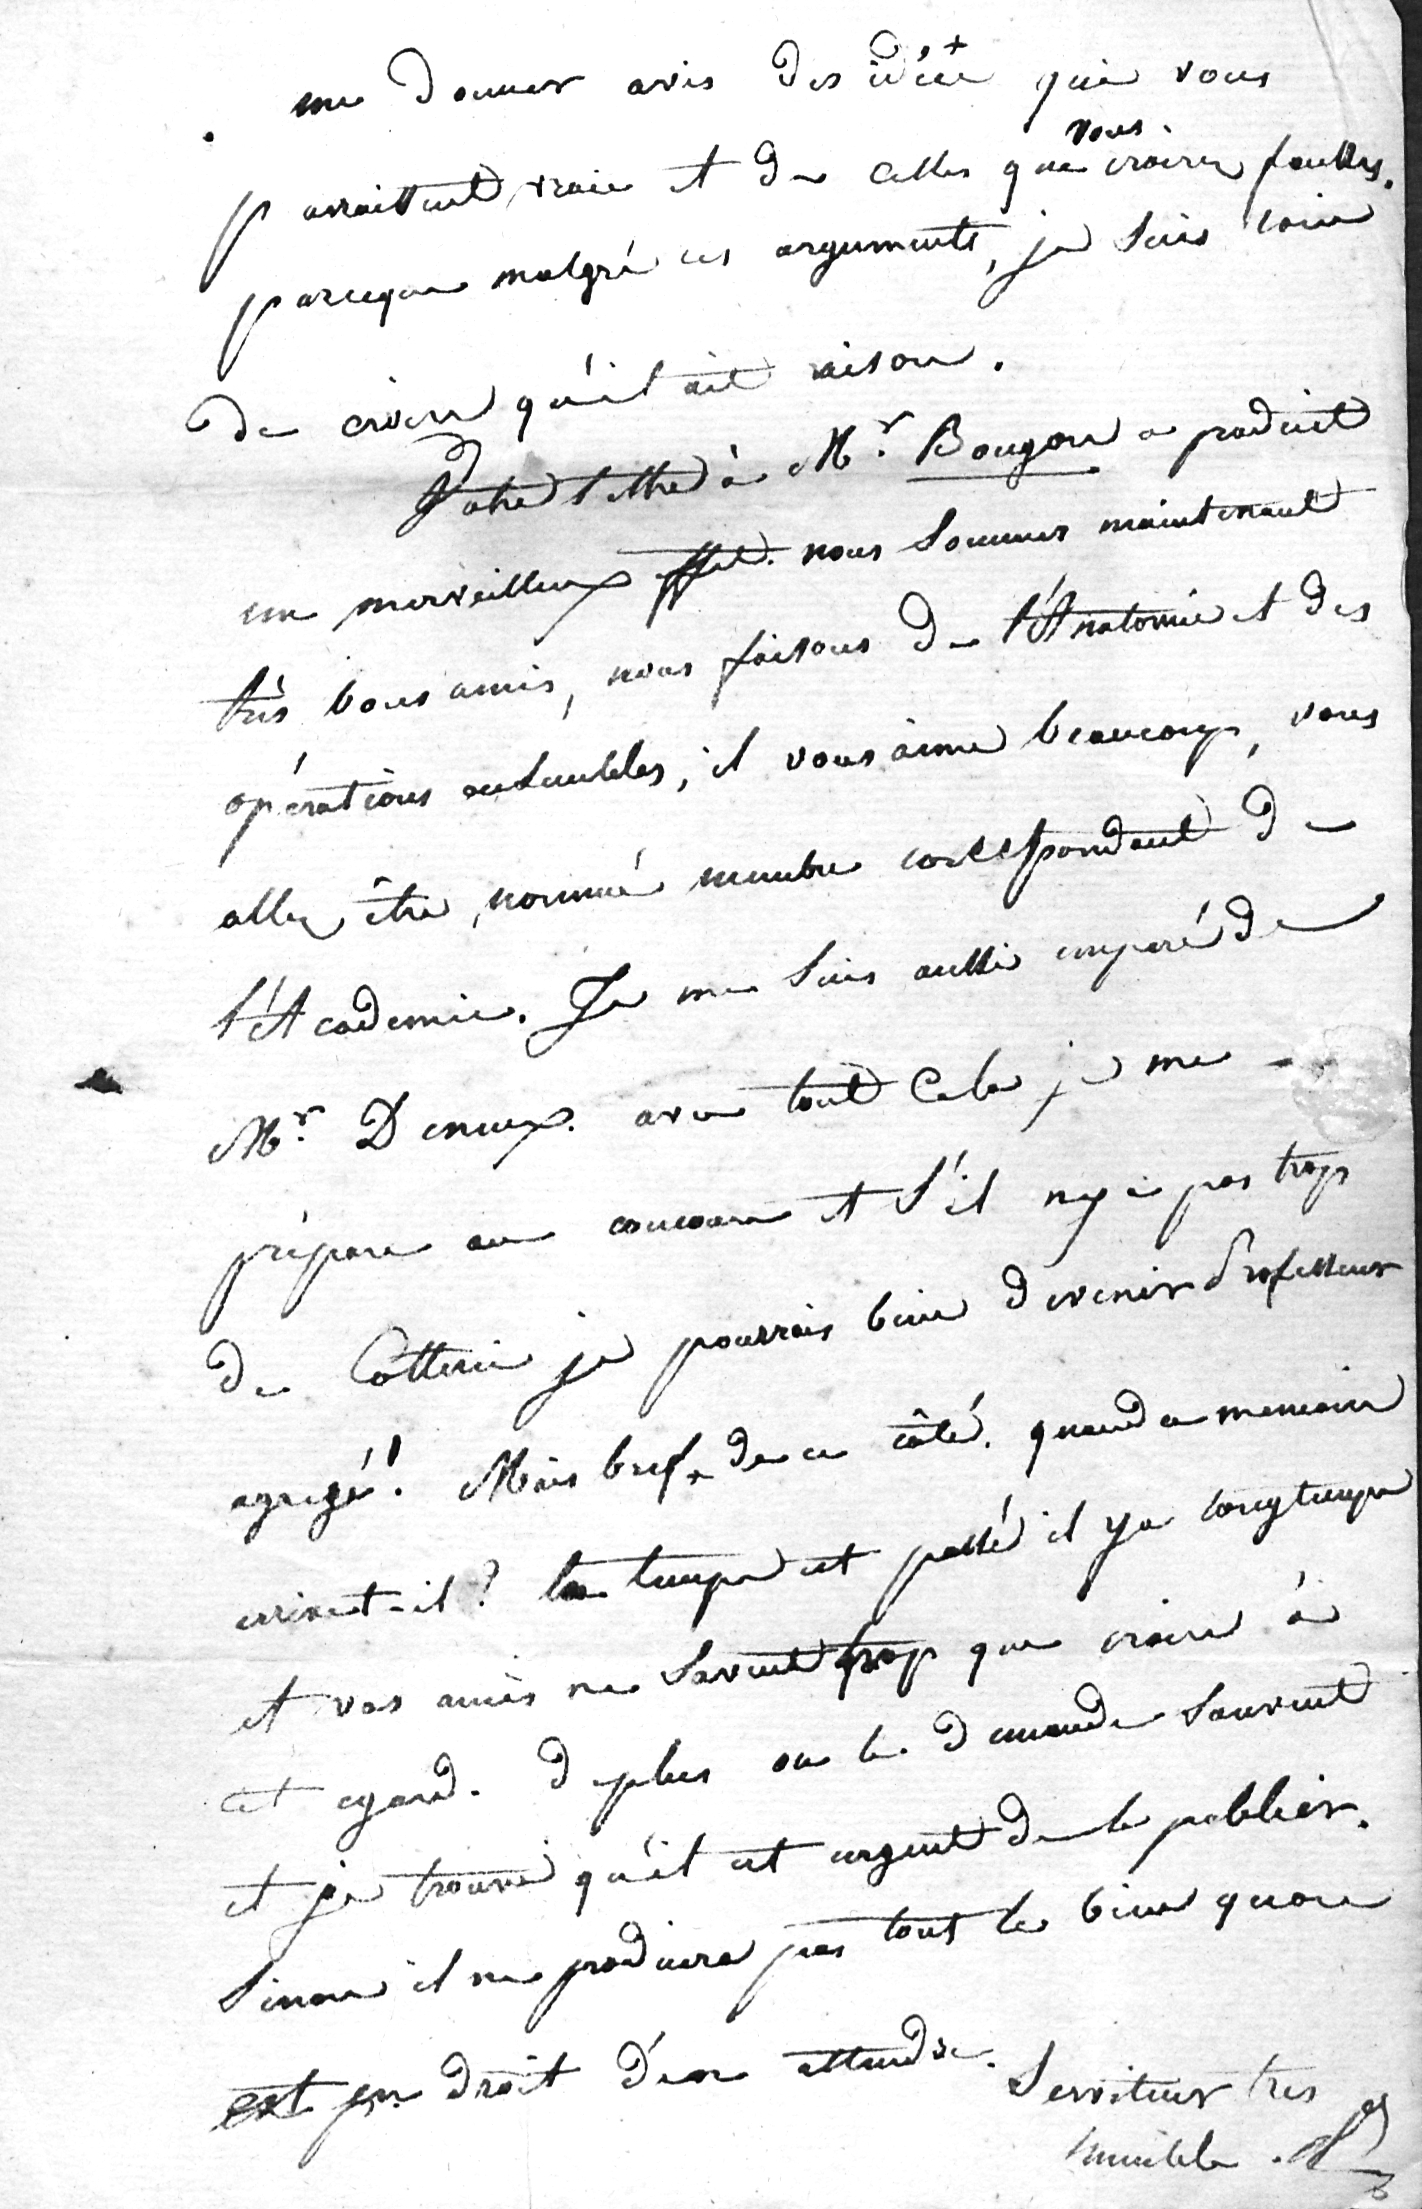 me donner avis des idées qui vous
paraissent vraie et de celles que vous croirez fausses.
parceque malgré ces arguments, je suis loin
de croire qu'il ait raison.
Votre lettre à Mr. Bougon a produit
un merveilleux effet. nous sommes maintenant
très bons amis, nous faisons de l'Anatomie et des
opérations ensembles, il vous aime beaucoup, vous
allez être nommé membre correspondant de
l'Academie. Je me suis aussi emparé de
Mr. Deneux. avec tout cela je me
prépare au concours et s'il n'y a pas trop
de Cotterie je pourrais bien devenir Professeur
agregé! Mais bref. de ce côté. quand ce memoire
arrivet-il? le temps est passé il y a longtemps
et vos amis ne savent trop que croire à
cet egard. de plus on le demande souvent
et je trouve qu'il est urgent de le publier.
Sinon il ne produira pas tout le bien quon
est en droit d'en attendre. Serviteur tres
humble.